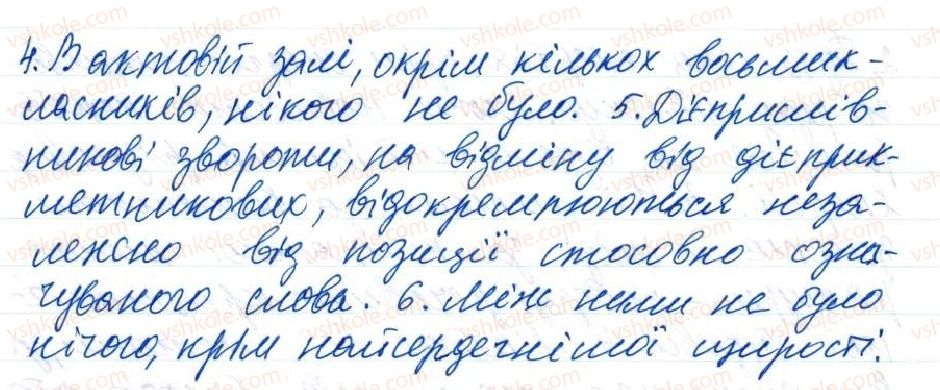 4. В актовій залі, окрім кількох восьмик-
ласників, нікого не було. 5. Дієприслів-
никові звороти, на відміну від дієприк-
метникових, відокремлюються неза-
лежно від позиції стосовно озна-
чуваного слова. 6. Між ними не було
нічого, крім найсердечнішої щирості.